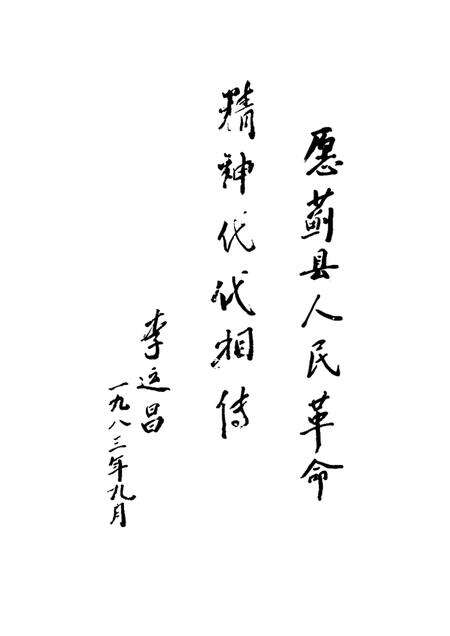 愿蓟县人民革命
精神代代相传
李运昌
一九八三年九月